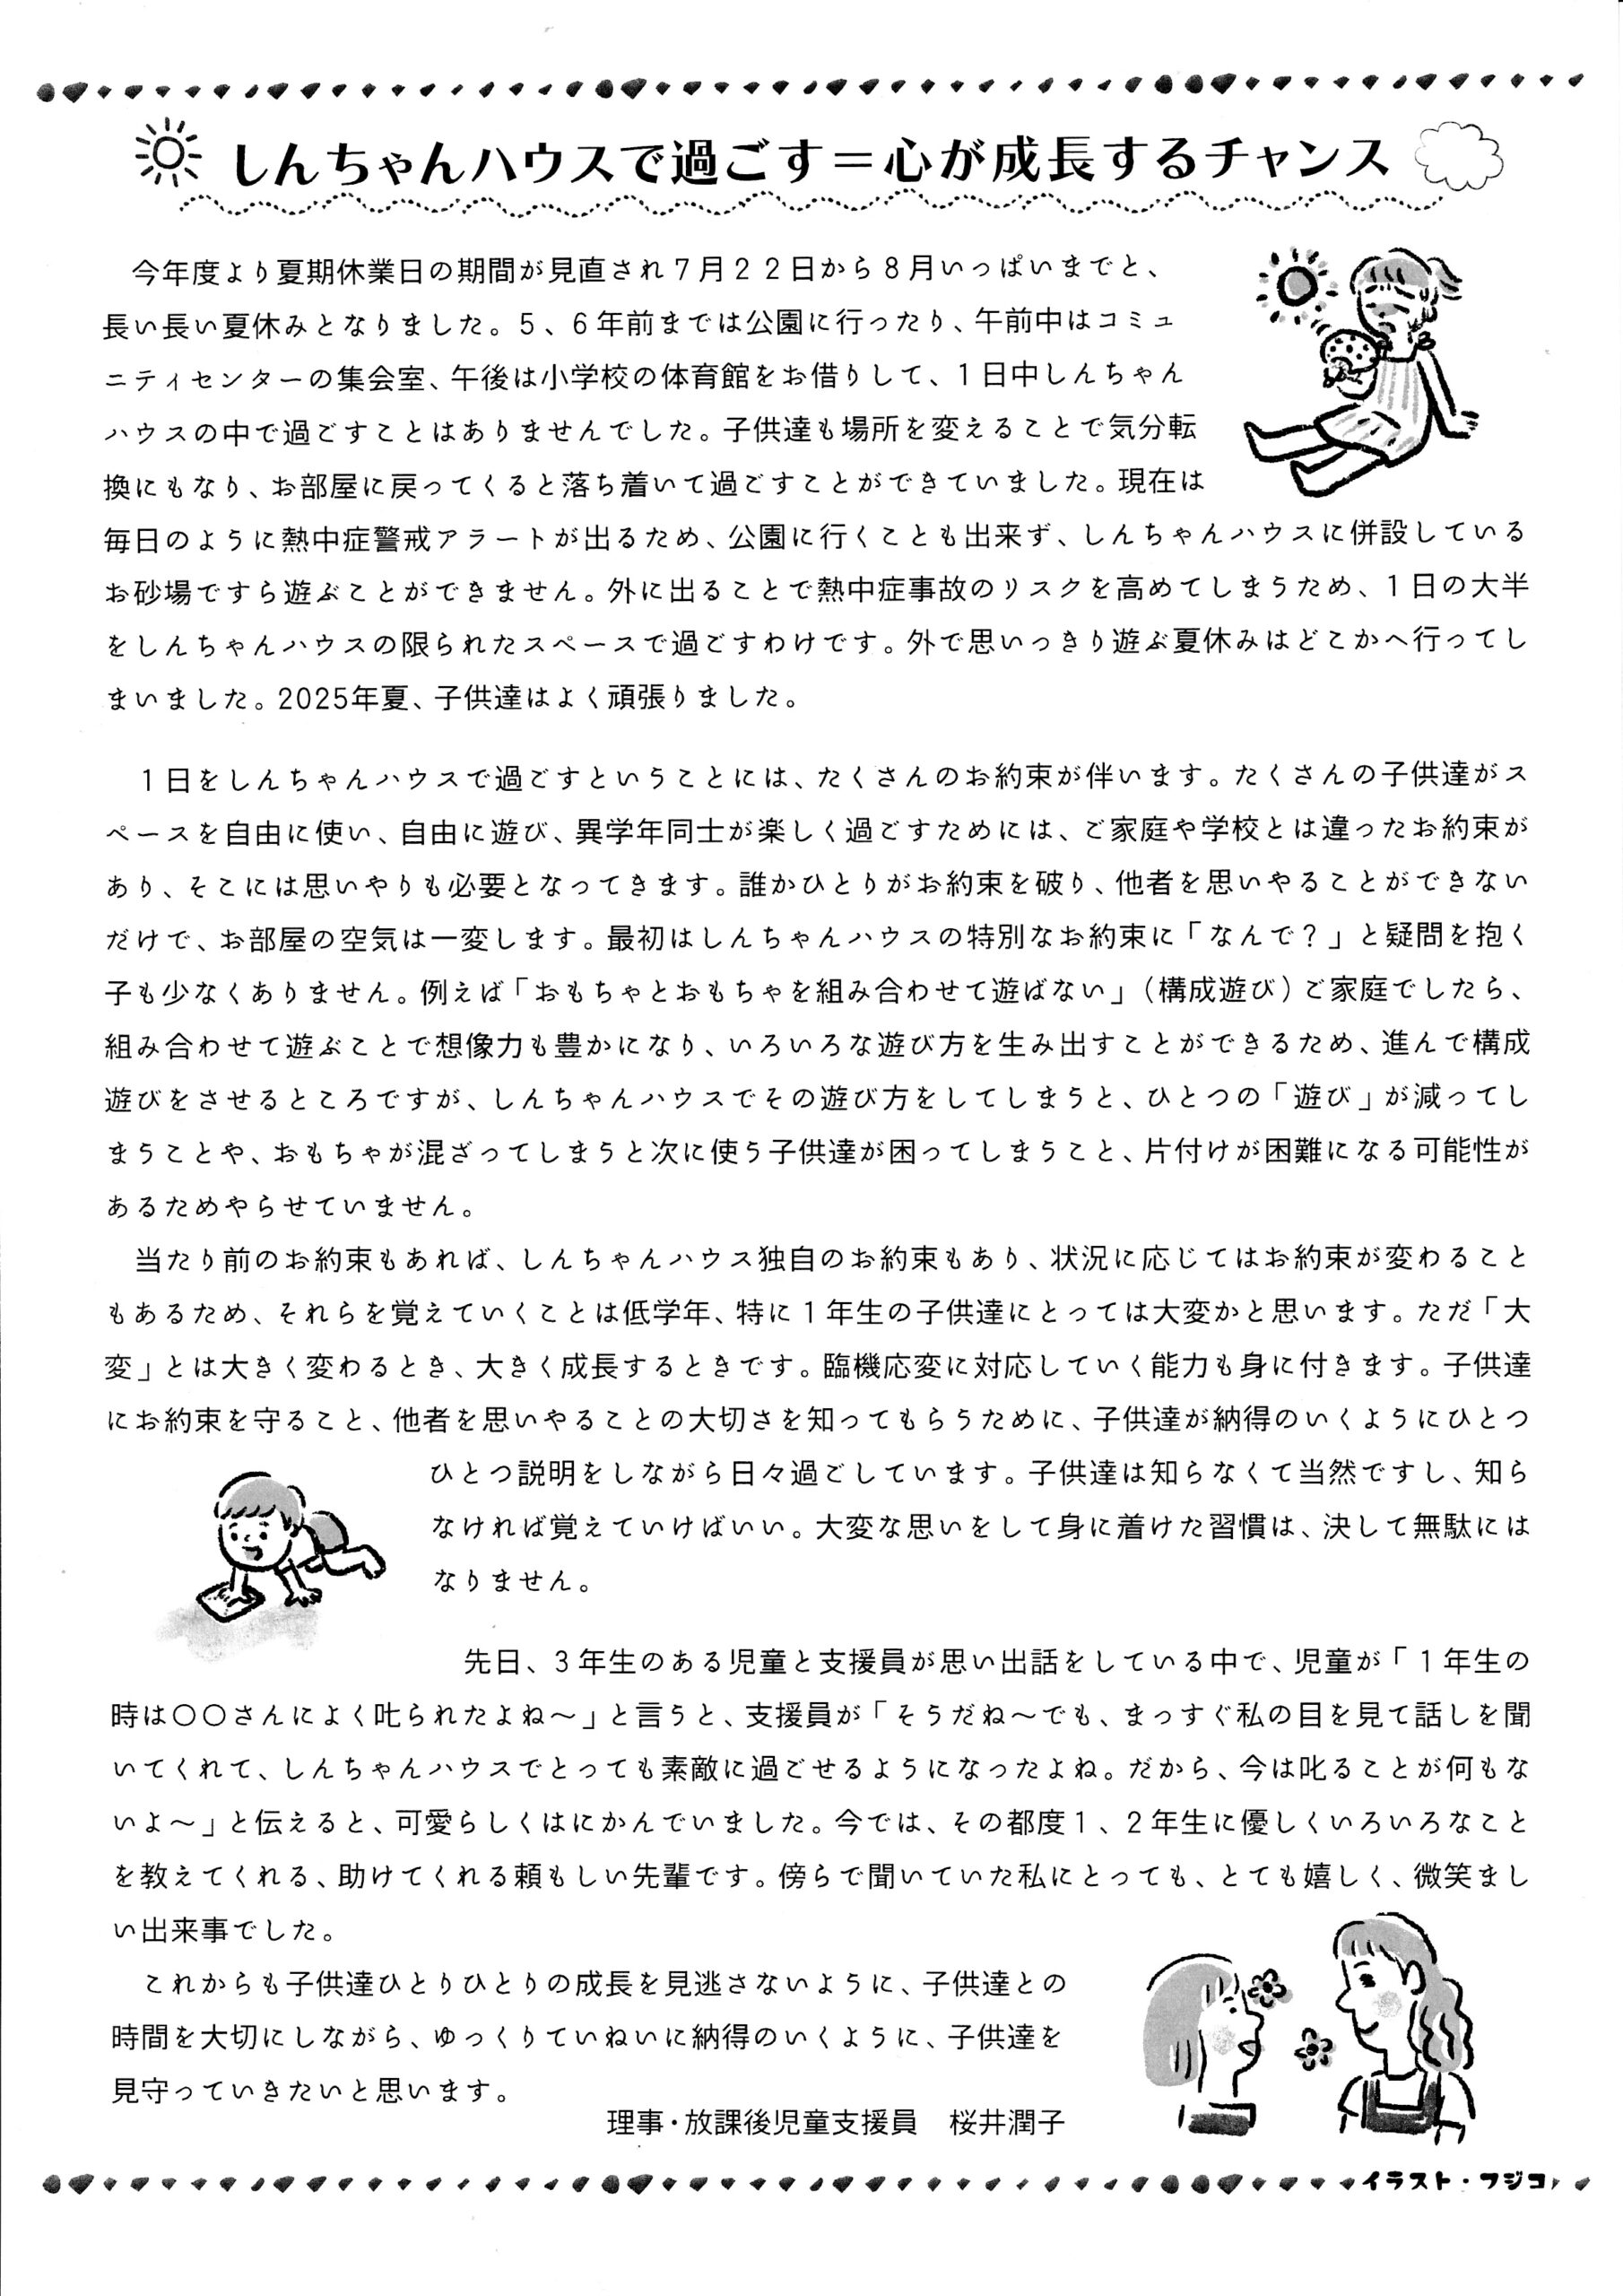 しんちゃんハウスで過ごす＝心が成長するチャンス
今年度より夏期休業日の期間が見直され７月２２日から８月いっぱいまでと、
長い長い夏休みとなりました。５、６年前までは公園に行ったり、午前中はコミュ
ニティセンターの集会室、午後は小学校の体育館をお借りして、１日中しんちゃん
ハウスの中で過ごすことはありませんでした。子供達も場所を変えることで気分転
換にもなり、お部屋に戻ってくると落ち着いて過ごすことができていました。現在は
毎日のように熱中症警戒アラートが出るため、公園に行くことも出来ず、しんちゃんハウスに併設している
お砂場ですら遊ぶことができません。外に出ることで熱中症事故のリスクを高めてしまうため、１日の大半
をしんちゃんハウスの限られたスペースで過ごすわけです。外で思いっきり遊ぶ夏休みはどこかへ行ってし
まいました。2025年夏、子供達はよく頑張りました。
１日をしんちゃんハウスで過ごすということには、たくさんのお約束が伴います。たくさんの子供達がス
ペースを自由に使い、自由に遊び、異学年同士が楽しく過ごすためには、ご家庭や学校とは違ったお約束が
あり、そこには思いやりも必要となってきます。誰かひとりがお約束を破り、他者を思いやることができない
だけで、お部屋の空気は一変します。最初はしんちゃんハウスの特別なお約束に「なんで？」と疑問を抱く
子も少なくありません。例えば「おもちゃとおもちゃを組み合わせて遊ばない」（構成遊び）ご家庭でしたら、
組み合わせて遊ぶことで想像力も豊かになり、いろいろな遊び方を生み出すことができるため、進んで構成
遊びをさせるところですが、しんちゃんハウスでその遊び方をしてしまうと、ひとつの「遊び」が減ってし
まうことや、おもちゃが混ざってしまうと次に使う子供達が困ってしまうこと、片付けが困難になる可能性が
あるためやらせていません。
当たり前のお約束もあれば、しんちゃんハウス独自のお約束もあり、状況に応じてはお約束が変わること
もあるため、それらを覚えていくことは低学年、特に１年生の子供達にとっては大変かと思います。ただ「大
変」とは大きく変わるとき、大きく成長するときです。臨機応変に対応していく能力も身に付きます。子供達
にお約束を守ること、他者を思いやることの大切さを知ってもらうために、子供達が納得のいくようにひとつ
ひとつ説明をしながら日々過ごしています。子供達は知らなくて当然ですし、知ら
なければ覚えていけばいい。大変な思いをして身に着けた習慣は、決して無駄には
なりません。
先日、３年生のある児童と支援員が思い出話をしている中で、児童が「１年生の
時は〇〇さんによく叱られたよね～」と言うと、支援員が「そうだね～でも、まっすぐ私の目を見て話しを聞
いてくれて、しんちゃんハウスでとっても素敵に過ごせるようになったよね。だから、今は叱ることが何もな
いよ～」と伝えると、可愛らしくはにかんでいました。今では、その都度１、２年生に優しくいろいろなこと
を教えてくれる、助けてくれる頼もしい先輩です。傍らで聞いていた私にとっても、とても嬉しく、微笑まし
い出来事でした。
これからも子供達ひとりひとりの成長を見逃さないように、子供達との
時間を大切にしながら、ゆっくりていねいに納得のいくように、子供達を
見守っていきたいと思います。
理事・放課後児童支援員　桜井潤子
イラスト・フジコ